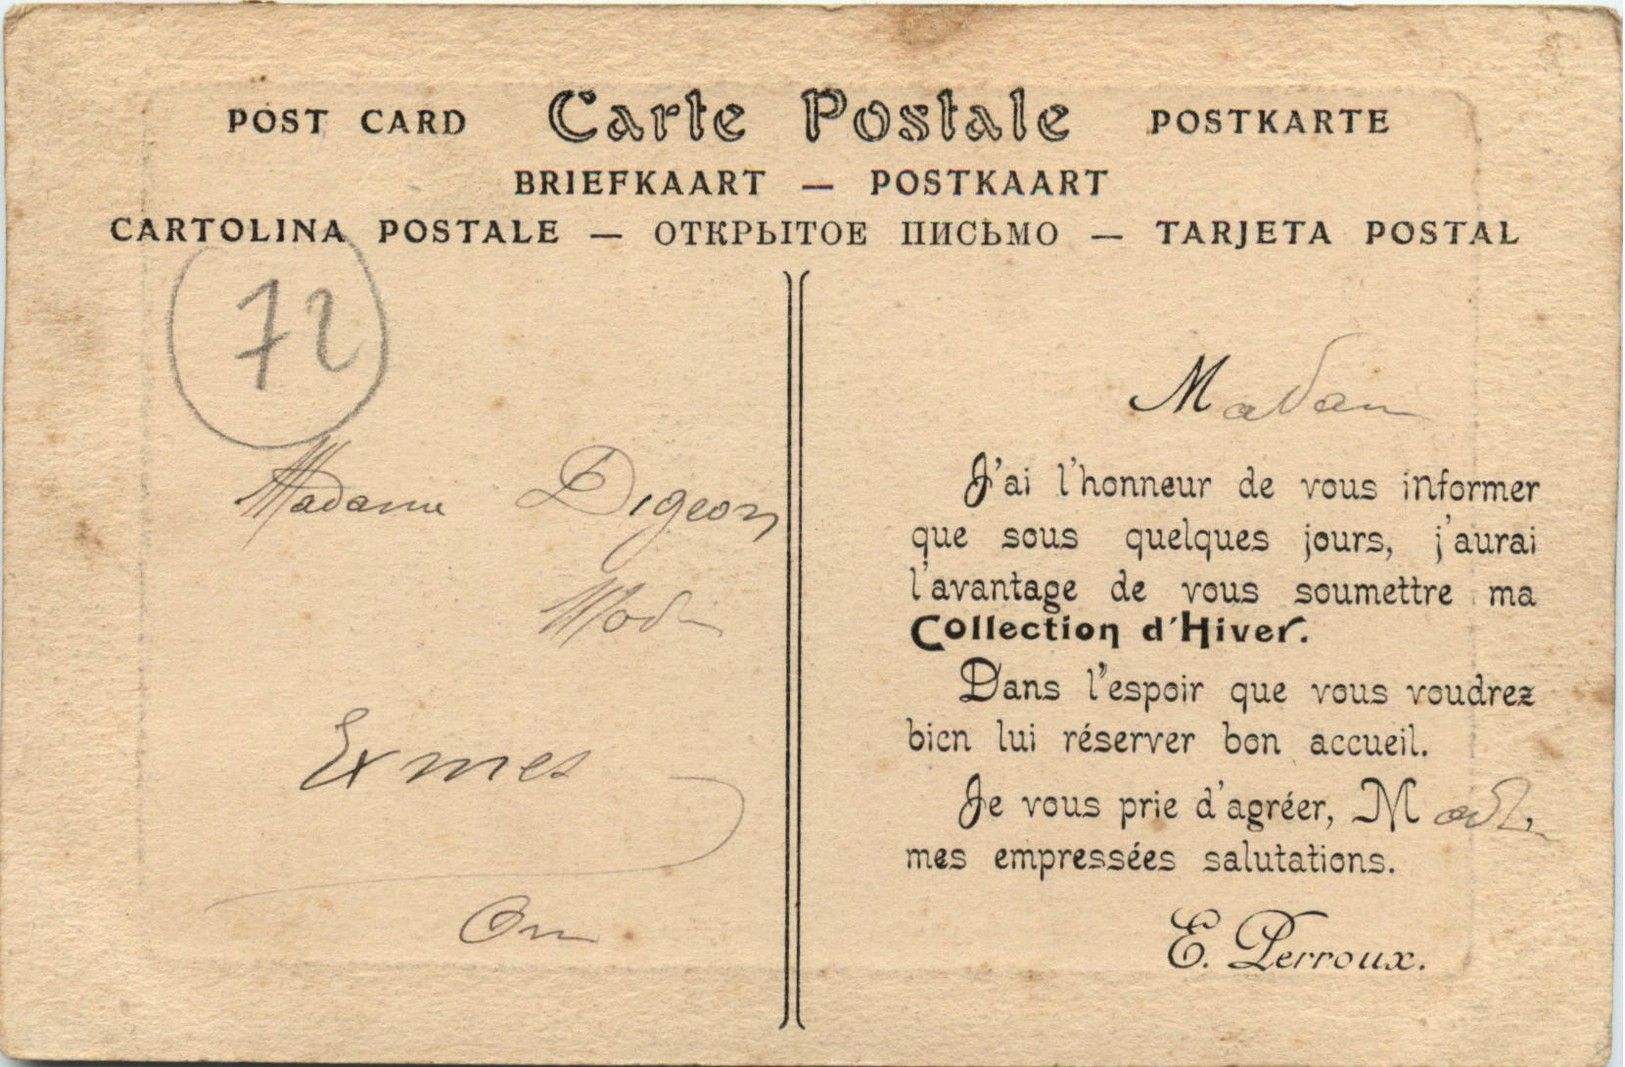 POST CARD Carte Postale POSTKARTE
BRIEFKAART — POSTKAART
CARTOLINA POSTALE — ОТКРЫТОЕ ПИСЬМО — TARJETA POSTAL
72
Madame Digeon
Exmes
Madam
J'ai l'honneur de vous informer
que sous quelques jours, j'aurai
l'avantage de vous soumettre ma
Collection d'Hiver.
Dans l'espoir que vous voudrez
bien lui réserver bon accueil.
Je vous prie d'agréer, M
mes empressées salutations.
E. Perroux.